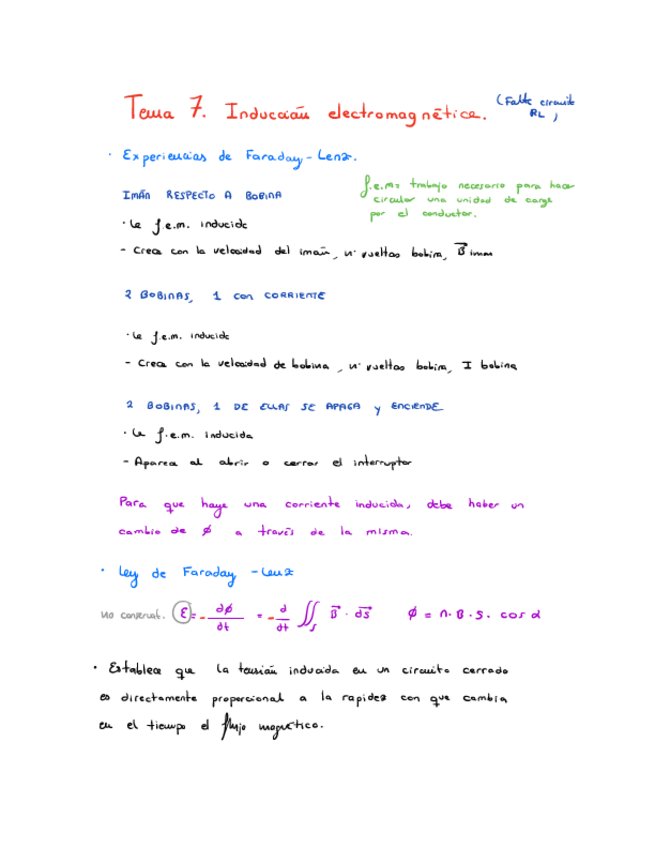 Tema 7. Inducción electromagnética. (Falta circuito RL)
· Experiencias de Faraday-Lenz.
f.e.m: trabajo necesario para hacer
circular una unidad de carga
por el conductor.
IMÁN RESPECTO A BOBINA
· La f.e.m. inducida
- Crece con la velocidad del imán, nº vueltas bobina, B⃗ imán
2 BOBINAS, 1 CON CORRIENTE
· La f.e.m. inducida
- Crece con la velocidad de bobina, nº vueltas bobina, I bobina
2 BOBINAS, 1 DE ELLAS SE APAGA y ENCIENDE
· La f.e.m. inducida
- Aparece al abrir o cerrar el interruptor
Para que haya una corriente inducida, debe haber un
cambio de ϕ a través de la misma.
· Ley de Faraday - Lenz
no conservat. ε = - dϕ/dt = - d/dt ∬_S B⃗ · dS⃗ ϕ = n · B · S · cos α
· Establece que la tensión inducida en un circuito cerrado
es directamente proporcional a la rapidez con que cambia
en el tiempo el flujo magnético.